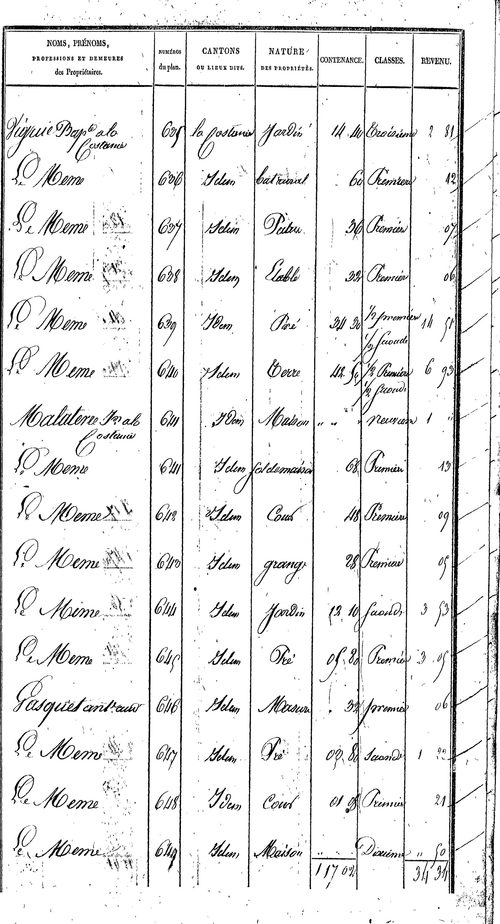 NOMS, PRÉNOMS, PROFESSIONS ET DEMEURES des Propriétaires. NUMÉROS du plan. CANTONS OU LIEUX DITS. NATURE DES PROPRIÉTÉS. CONTENANCE. CLASSES. REVENU.
Viguié Bap.te a la Costanie 635 la Costanie Jardin 14 40 Troisieme 2 81
Le Meme 636 Idem 60 Premiere 12
Le Meme 637 Idem Patou 36 Premier 07
Le Meme 638 Idem Etable 32 Premier 06
Le Meme 639 Idem Pré 34 30 1/2 premier 1/2 seconde 14 51
Le Meme 640 Idem Terre 42 50 1/2 Premiere 1/2 seconde 6 93
a la Costanie 641 Idem Maison " " " neuvieme 1 "
Le Meme 641 Idem sol de maison 68 Premier 13
Le Meme 642 Idem Cour 48 Premiere 09
Le Meme 643 Idem grange 28 Premiere 05
Le Meme 644 Idem Jardin 12 10 seconde 3 53
Le Meme 645 Idem Pré 05 80 Premier 3 05
Gasquet 646 Idem Masure 32 premier 06
Le Meme 647 Idem Pré 03 80 seconde 1 22
Le Meme 648 Idem Cour 01 08 Premier 21
Le Meme 649 Idem Maison " " Dixieme " 50
1 17 02 34 34